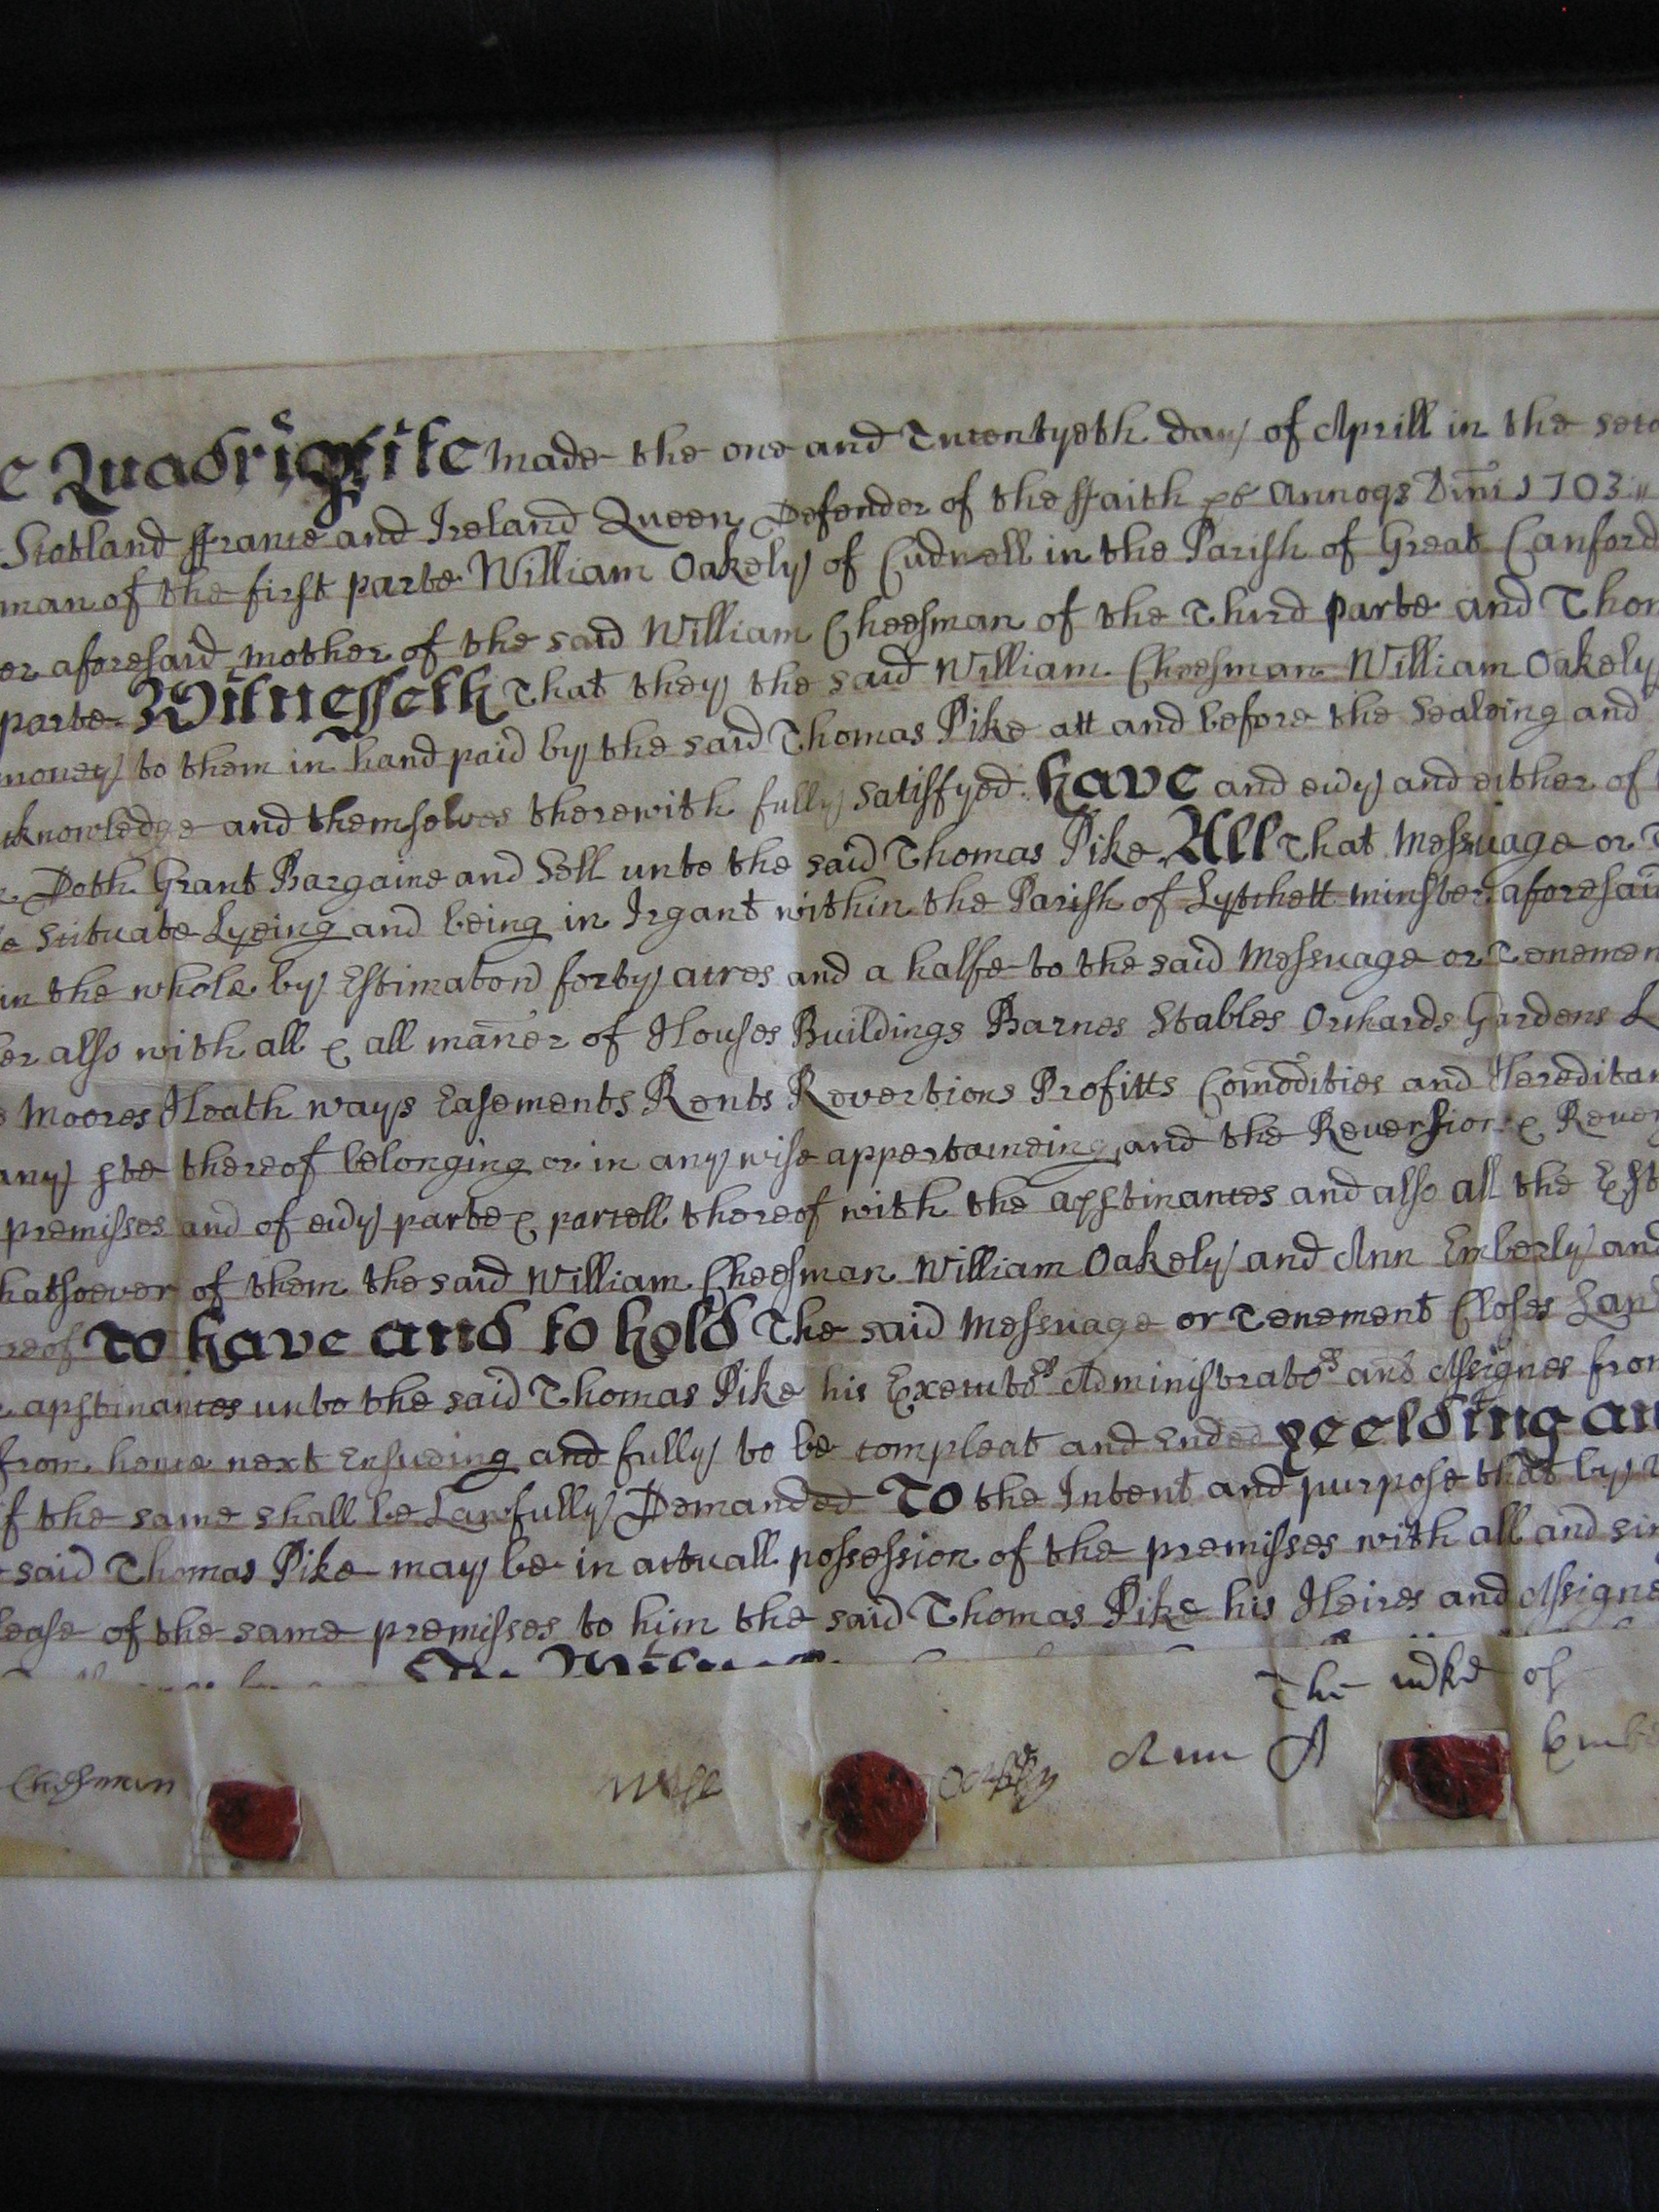 Quadripartite made the one and Twentyeth day of Aprill in the
Scotland ffrance and Ireland Queen Defender of the ffaith &c Annoqs Dm̄i 1703
man of the first parte William Oakely of Cudnell in the Parish of Great Canford
er aforesaid mother of the said William Cheesman of the Third parte and Thom
parte Witnesseth That they the said William Cheesman William Oakely
money to them in hand paid by the said Thomas Pike att and before the Sealeing and
cknowledge and themselves therewith fully satisfyed have and ev'y and either of
Doth Grant Bargaine and Sell unto the said Thomas Pike All that Messuage or T
Scituate Lyeing and being in Irgant within the Parish of Lytchett minster aforesaid
in the whole by Estimaton forty acres and a halfe to the said Messuage or Tenemen
er also with all & all man̄er of Houses Buildings Barnes Stables Orchards Gardens L
Moores Heath ways Easements Rents Revertions Profitts Com̄odities and Hereditam
any pte thereof belonging or in any wise apperteineing and the Reversion & Rever
premisses and of ev'y parte & parcell thereof with the apptinances and also all the Est
hatsoever of them the said William Cheesman William Oakely and Ann Emberly and
reof To have and to hold The said Messuage or Tenement Closes Land
apptinances unto the said Thomas Pike his Executors Administrators and Assignes from
from hence next Ensueing and fully to be compleat and Ended yeelding an
if the same shall be Lawfully Demanded To the Intent and purpose that by
said Thomas Pike may be in actuall possession of the premisses with all and sin
lease of the same premisses to him the said Thomas Pike his Heires and Assigne
The mke of
Cheesman Will Oakely Ann A Embe